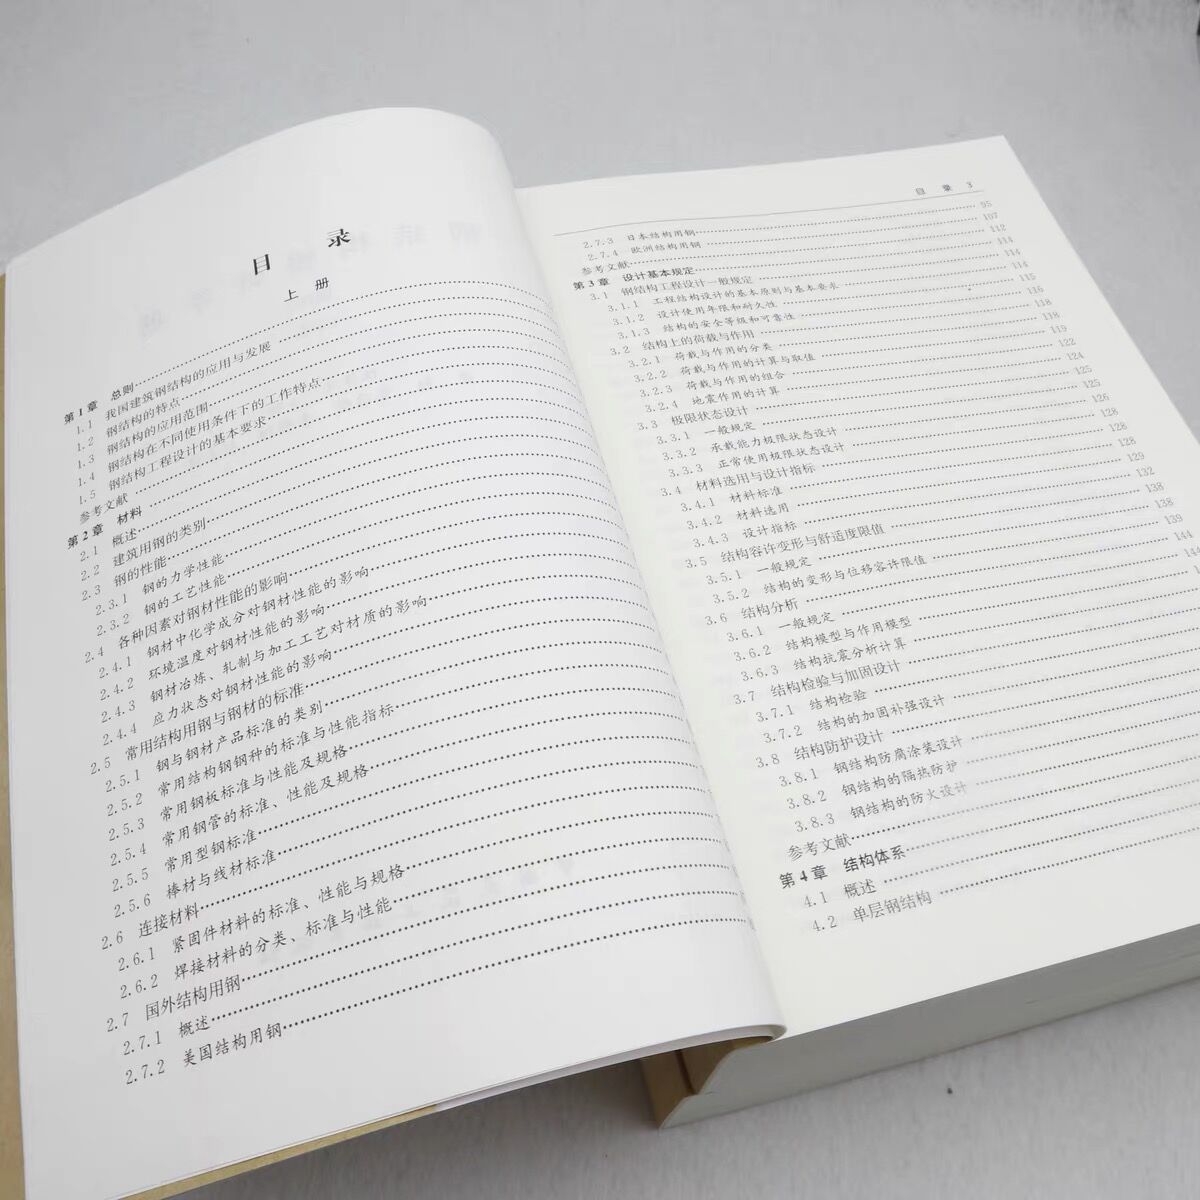 目 录
上 册
第1章 总则
1.1 我国建筑钢结构的应用与发展
1.2 钢结构的特点
1.3 钢结构的应用范围
1.4 钢结构在不同使用条件下的工作特点
1.5 钢结构工程设计的基本要求
参考文献
第2章 材料
2.1 概述
2.2 建筑用钢的类别
2.3 钢的性能
2.3.1 钢的力学性能
2.3.2 钢的工艺性能
2.4 各种因素对钢材性能的影响
2.4.1 钢材中化学成分对钢材性能的影响
2.4.2 环境温度对钢材性能的影响
2.4.3 钢材冶炼、轧制与加工工艺对材质的影响
2.4.4 应力状态对钢材性能的影响
2.5 常用结构用钢与钢材的标准
2.5.1 钢与钢材产品标准的类别
2.5.2 常用结构钢钢种的标准与性能指标
2.5.3 常用钢板标准与性能及规格
2.5.4 常用钢管的标准、性能及规格
2.5.5 常用型钢标准
2.5.6 棒材与线材标准
2.6 连接材料
2.6.1 紧固件材料的标准、性能与规格
2.6.2 焊接材料的分类、标准与性能
2.7 国外结构用钢
2.7.1 概述
2.7.2 美国结构用钢
目 录 3
2.7.3 日本结构用钢 95
2.7.4 欧洲结构用钢 107
参考文献 112
第3章 设计基本规定 114
3.1 钢结构工程设计一般规定 114
3.1.1 工程结构设计的基本原则与基本要求 114
3.1.2 设计使用年限和耐久性 115
3.1.3 结构的安全等级和可靠性 116
3.2 结构上的荷载与作用 118
3.2.1 荷载与作用的分类 118
3.2.2 荷载与作用的计算与取值 119
3.2.3 荷载与作用的组合 122
3.2.4 地震作用的计算 124
3.3 极限状态设计 125
3.3.1 一般规定 125
3.3.2 承载能力极限状态设计 126
3.3.3 正常使用极限状态设计 128
3.4 材料选用与设计指标 128
3.4.1 材料标准 128
3.4.2 材料选用 129
3.4.3 设计指标 132
3.5 结构容许变形与舒适度限值 138
3.5.1 一般规定 138
3.5.2 结构的变形与位移容许限值 139
3.6 结构分析 144
3.6.1 一般规定 144
3.6.2 结构模型与作用模型
3.6.3 结构抗震分析计算
3.7 结构检验与加固设计
3.7.1 结构检验
3.7.2 结构的加固补强设计
3.8 结构防护设计
3.8.1 钢结构防腐涂装设计
3.8.2 钢结构的隔热防护
3.8.3 钢结构的防火设计
参考文献
第4章 结构体系
4.1 概述
4.2 单层钢结构